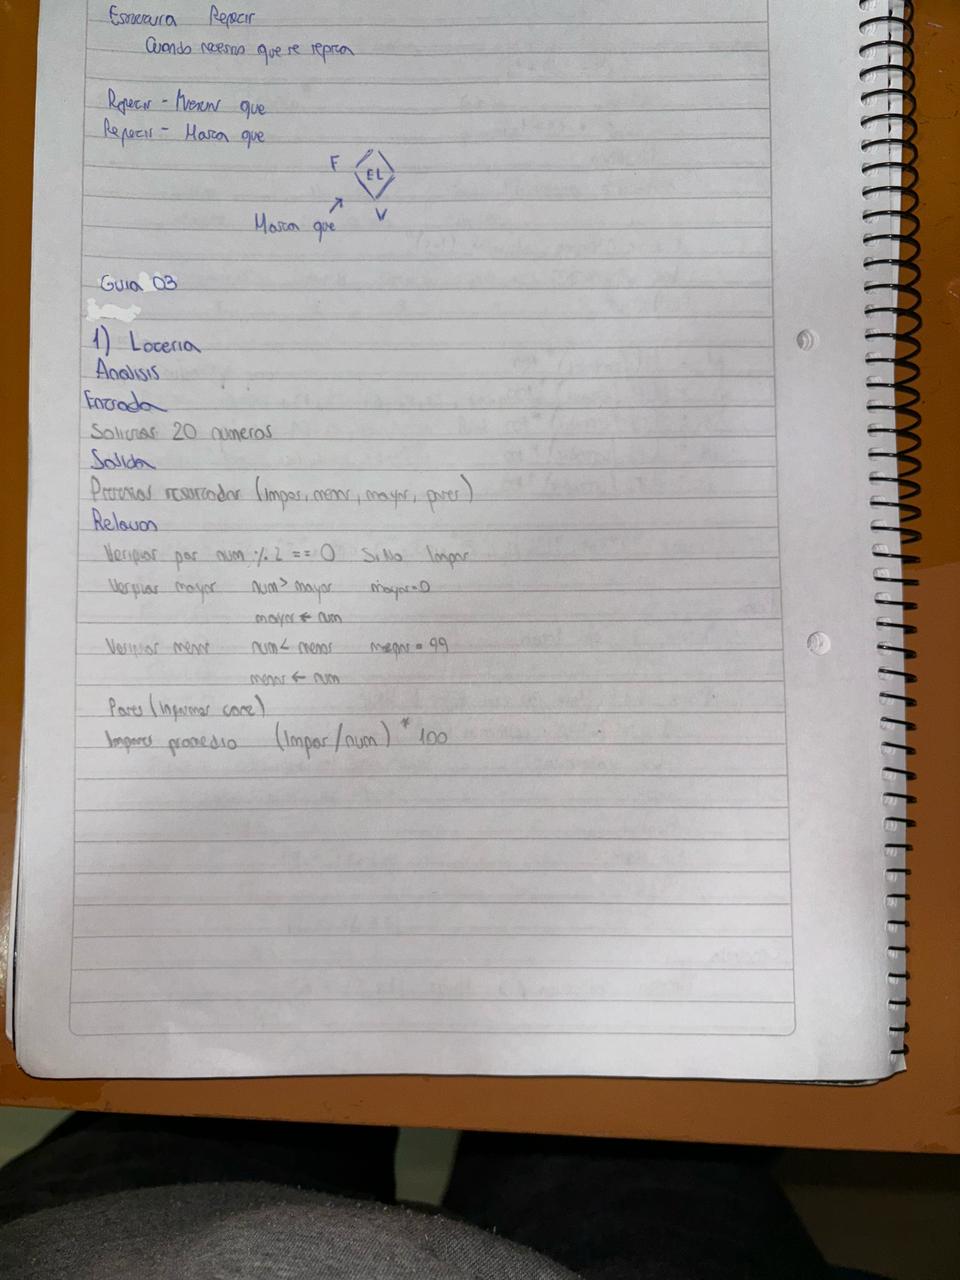 Estructura Repetir
Cuando necesito que se repita
Repetir - Mientras que
Repetir - Hasta que
F
EL
V
Hasta que
Guia 03
1) Loteria
Analisis
Entrada
Solicitar 20 numeros
Salida
resultados (impar, menor, mayor, pares)
Relevos
Verificar par num % 2 == 0 SiNo Impar
Verificar mayor num > mayor mayor=0
mayor ← num
Verificar menor num < menor menor = 99
menor ← num
Pares (informar cant)
Impares promedio (Impar/num) * 100